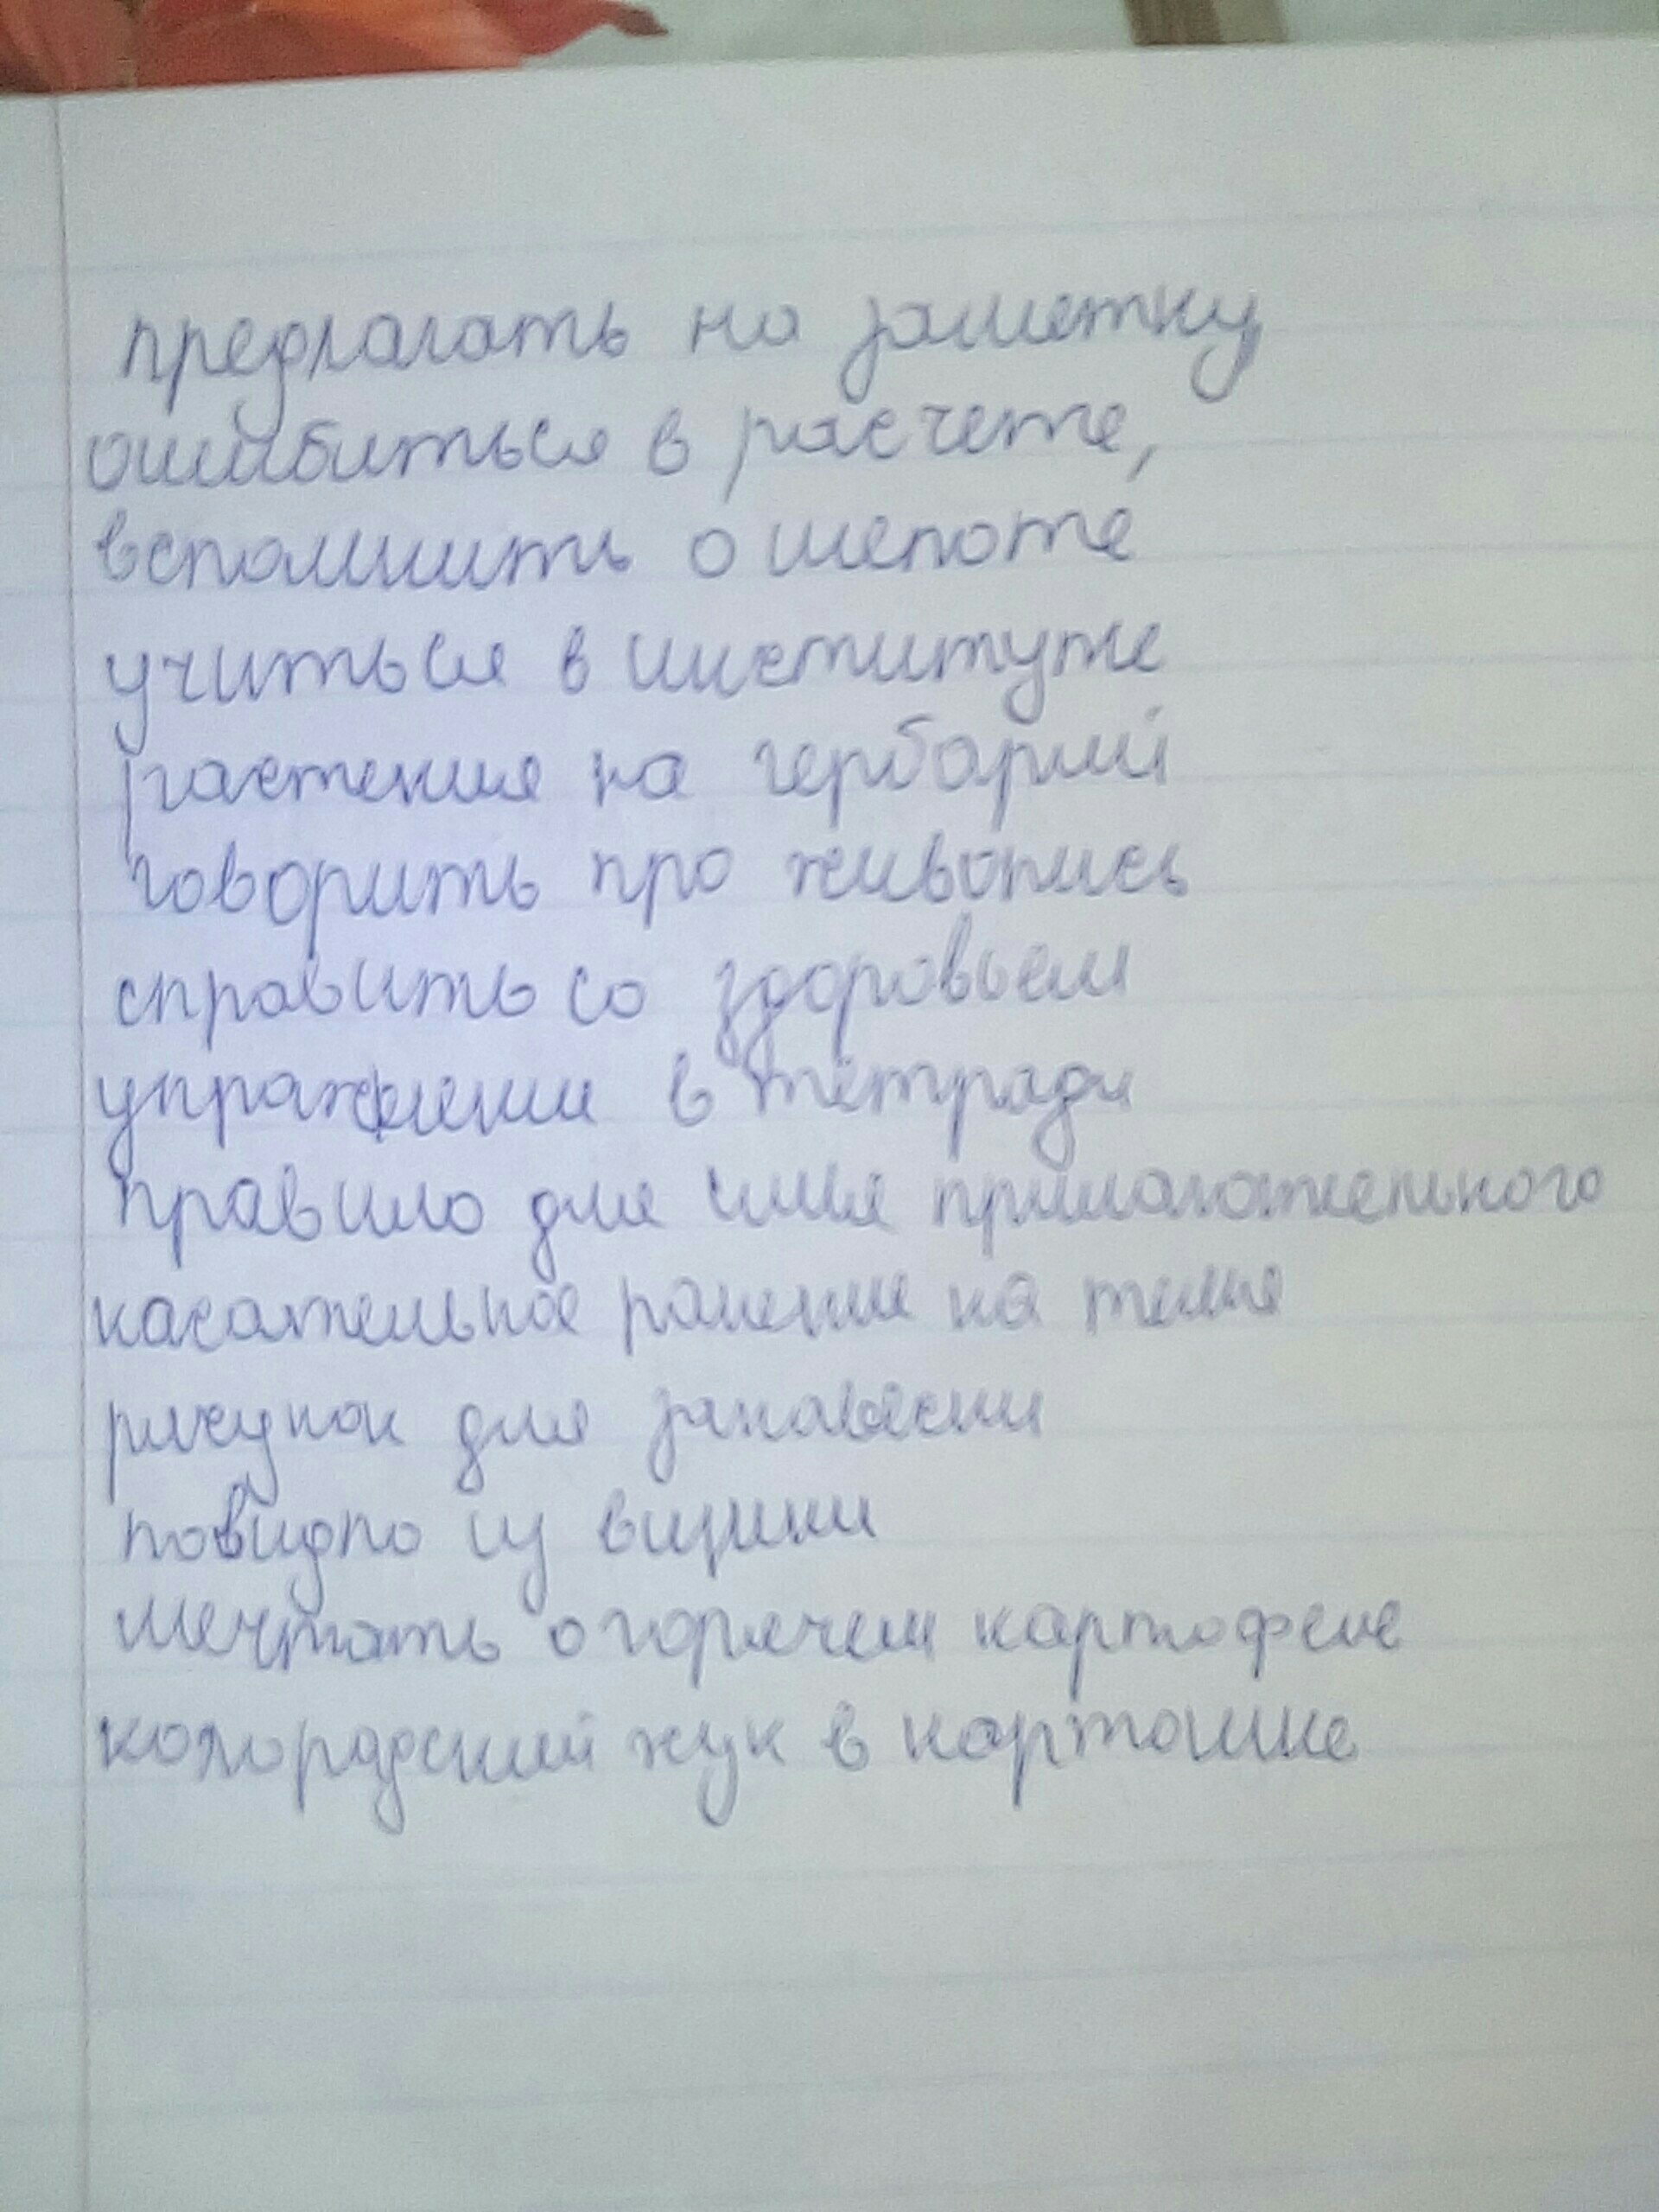 предлагать на заметку
ошибиться в расчете,
вспомнить о шепоте
учиться в институте
растения на гербарий
говорить про живопись
справить со здоровьем
упражнении в тетради
правило для имя прилагательного
касательное ранение на теме
рисунок для занавески
повидло из вишни
мечтать о горячем картофеле
колорадский жук в картошке